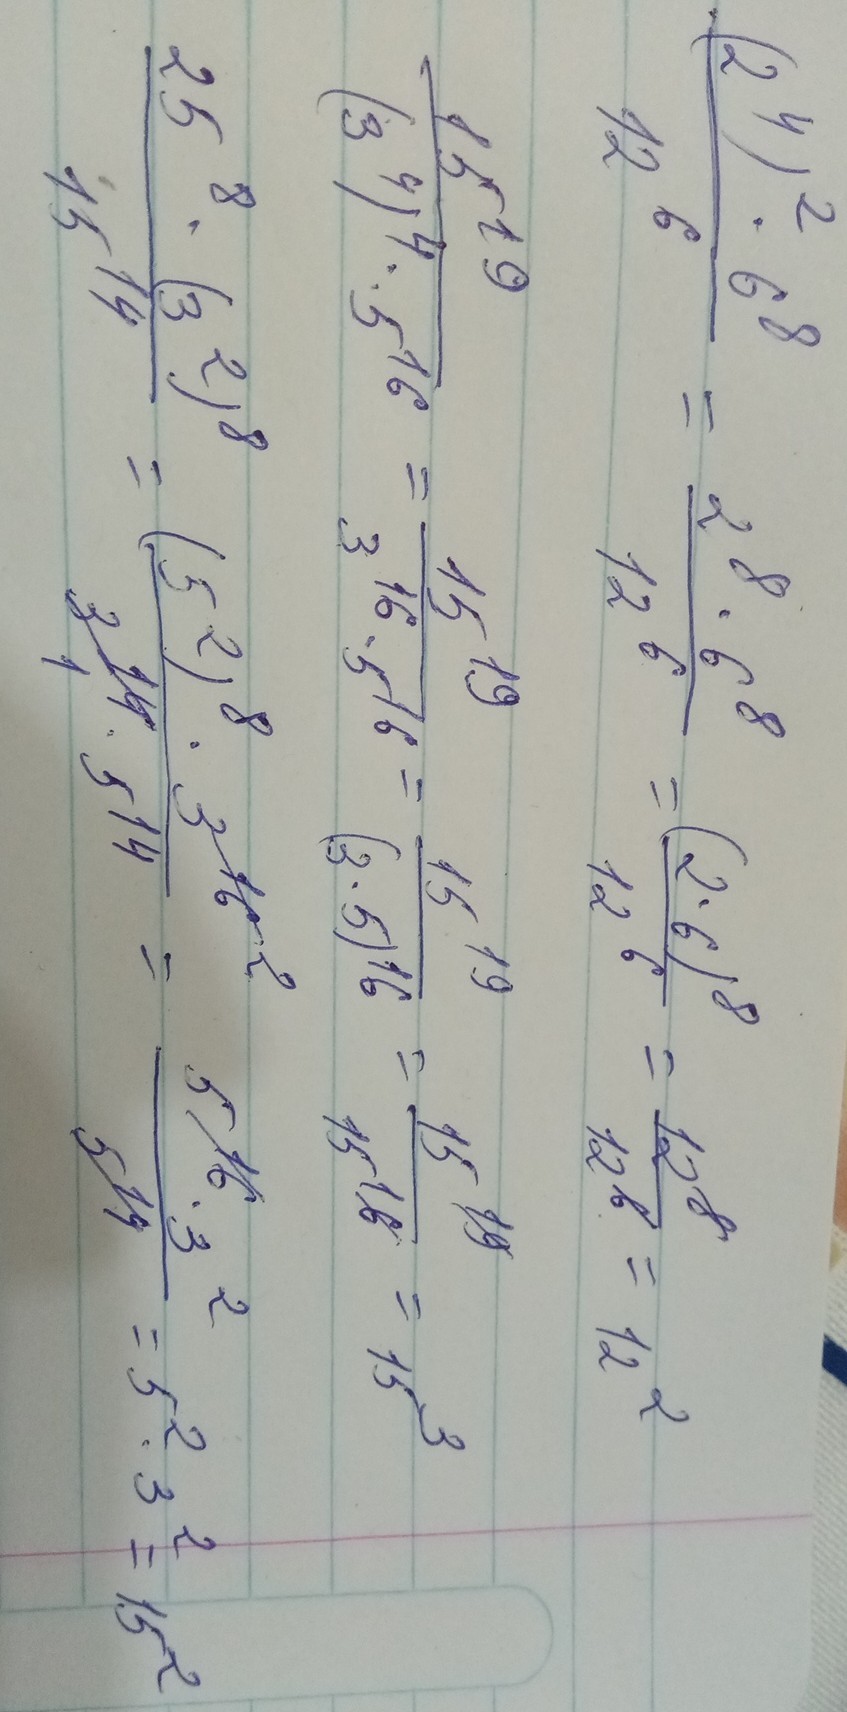 (2⁴)² · 6⁸ / 12⁶ = 2⁸ · 6⁸ / 12⁶ = (2 · 6)⁸ / 12⁶ = 12⁸ / 12⁶ = 12²
15¹⁹ / (3⁴)⁴ · 5¹⁶ = 15¹⁹ / 3¹⁶ · 5¹⁶ = 15¹⁹ / (3 · 5)¹⁶ = 15¹⁹ / 15¹⁶ = 15³
25⁸ · (3²)⁸ / 15¹⁴ = (5²)⁸ · 3¹⁶ ² / 3¹⁴ 1 · 5¹⁴ = 5¹⁶ · 3² / 5¹⁴ = 5² · 3² = 15²